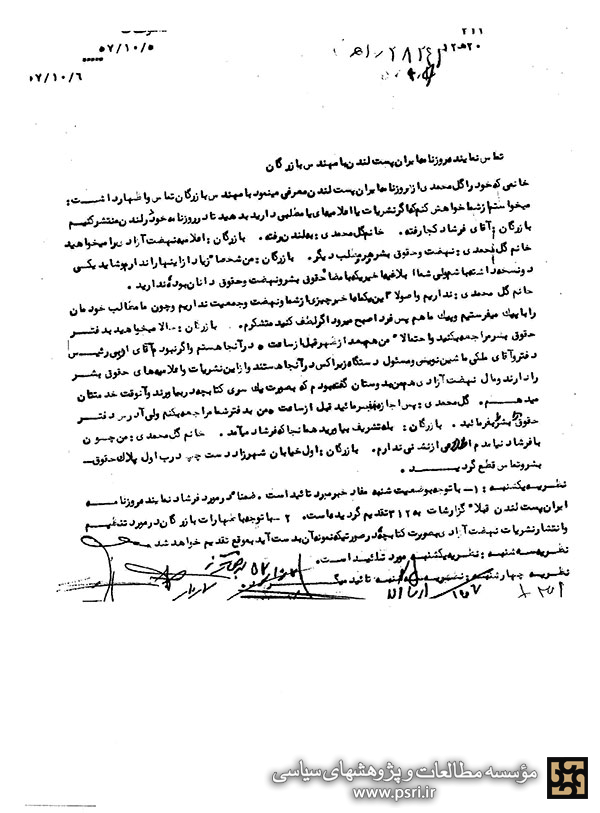 ۳۱۱
۵۷/۱۰/۵
۲۰ه۱۲
۲۸۲۴
۵۷/۱۰/۶
تماس نماینده روزنامه ایران پست لندن با مهندس بازرگان
خانمی که خود را گل محمدی از روزنامه ایران پست لندن معرفی مینمود با مهندس بازرگان تماس و اظهار داشت :
میخواستم از شما خواهش کنم که اگر نشریات یا اعلامیه‌ای یا مطلبی دارید بدهید تا در روزنامه خود در لندن منتشر کنیم
بازرگان : آقای فرشاد کجا رفته . خانم گل محمدی : به لندن رفته . بازرگان : اعلامیه نهضت آزادی را میخواهید
خانم گل محمدی : نهضت و حقوق بشر و هر مطلب دیگر . بازرگان : من شخصا" زیاد از اینها را ندارم و شاید یکی
دو نسخه داشته باشم ولی شما ابلاغیه اخیر که با امضاء حقوق بشر و نهضت و حقوق دانان بوده ندارید .
خانم گل محمدی : نداریم و اصولا" این یکماه اخیر چیزی از شما و نهضت و جمعیت نداریم و چون ما مطالب خودمان
را با پیک میفرستیم و پیک ما هم پس فردا صبح میرود اگر لطف کنید متشکرم . بازرگان : حالا میخواهید به دفتر
حقوق بشر مراجعه کنید و احتمالا" من هم بعد از ظهر قبل از ساعت ۵ در آنجا هستم و اگر نبودم آقای رئیس
دفتر و آقای ملکی ماشین نویس و مسئول دستگاه زیراکس در آنجا هستند و از این نشریات و اعلامیه‌های حقوق بشر
را دارند و مال نهضت آزادی هم من به دوستان گفته بودم که بصورت یک سری کتابچه در بیاورند و آنوقت خدمتتان
میدهم . گل محمدی : پس اجازه بفرمائید قبل از ساعت ۵ من به دفتر شما مراجعه کنم ولی آدرس دفتر
حقوق بشر را بفرمائید . بازرگان : بله تشریف بیاورید همانجا که فرشاد میآمد . خانم گل محمدی : من چون
با فرشاد نیامدم اطلاعی از نشانی ندارم . بازرگان : اول خیابان شهرزاد دست چپ درب اول پلاک حقوق
بشر و تماس قطع گردید .
نظریه یکشنبه : ۱- با توجه بوضعیت شنبه مفاد خبر مورد تائید است . ضمنا" در مورد فرشاد نماینده روزنامه
ایران پست لندن قبلا" گزارشات به ۳۱۲ تقدیم گردیده است . ۲- با توجه به اظهارات بازرگان در مورد تنظیم
و انتشار نشریات نهضت آزادی بصورت کتابچه در صورتیکه نمونه آن بدست آید به موقع تقدیم خواهد شد
نظریه سه شنبه : نظریه یکشنبه مورد تائید است .
نظریه چهارشنبه : نظریه سه شنبه تائید میگردد
مؤسسه مطالعات و پژوهشهای سیاسی
www.psri.ir